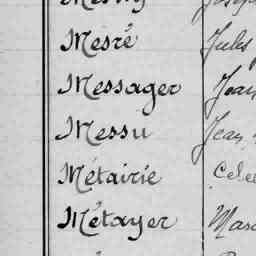 Mesré Jules
Messager Jean
Messu Jean
Métairie
Métayer